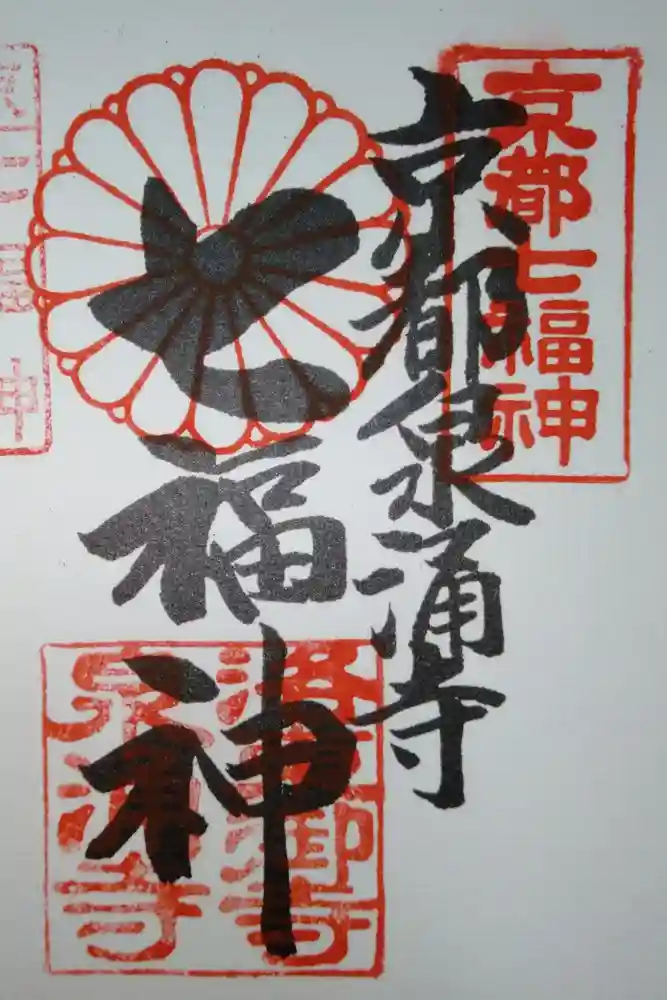 京都七福神
京都泉涌寺
七福神
御寺
泉涌寺
神